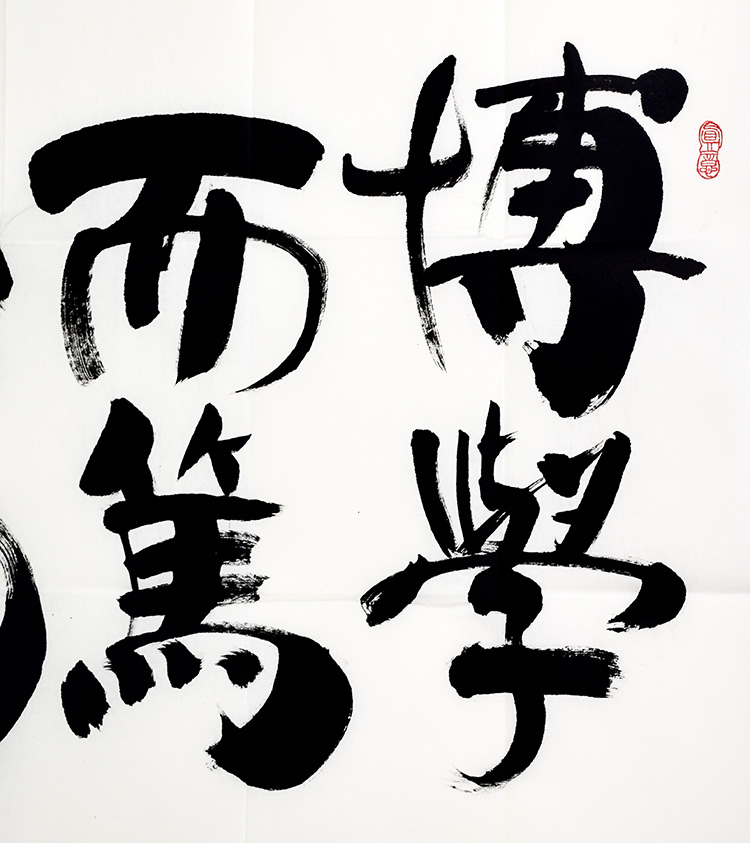 博學
而篤